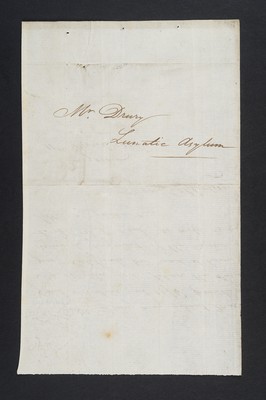 Mr. Drury
Lunatic Asylum